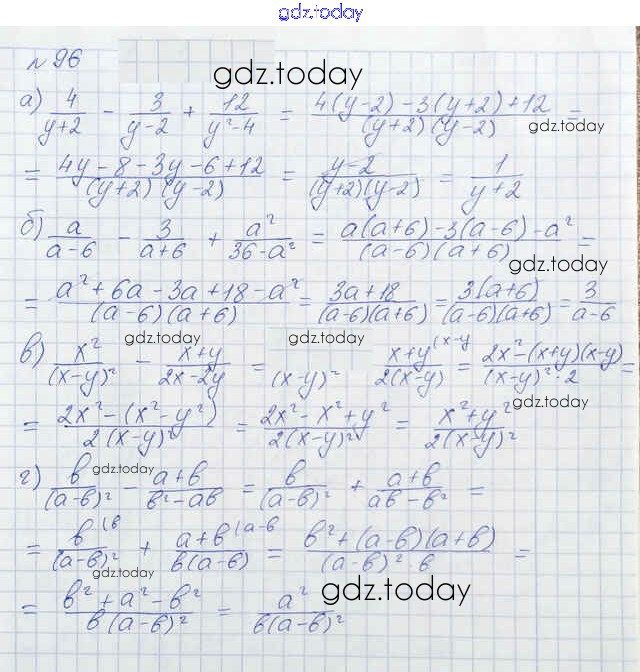 gdz.today
№ 96
gdz.today
а) 4/(y+2) - 3/(y-2) + 12/(y²-4) = (4(y-2)-3(y+2)+12)/((y+2)(y-2)) =
gdz.today
= (4y-8-3y-6+12)/((y+2)(y-2)) = (y-2)/((y+2)(y-2)) = 1/(y+2)
б) a/(a-6) - 3/(a+6) + a²/(36-a²) = (a(a+6)-3(a-6)-a²)/((a-6)(a+6)) =
gdz.today
= (a²+6a-3a+18-a²)/((a-6)(a+6)) = (3a+18)/((a-6)(a+6)) = (3(a+6))/((a-6)(a+6)) = 3/(a-6)
gdz.today gdz.today
в) x²/(x-y)² - (x+y)/(2x-2y) = (x-y)² (x+y)/(2(x-y)) (x-y = (2x²-(x+y)(x-y))/((x-y)²·2) =
gdz.today
= (2x²-(x²-y²))/(2(x-y)²) = (2x²-x²+y²)/(2(x-y)²) = (x²+y²)/(2(x-y)²)
gdz.today
г) b/(a-b)² - (a+b)/(b²-ab) = b/(a-b)² + (a+b)/(ab-b²) =
= b/(a-b)² (b + (a+b)/(b(a-b)) (a-b = (b²+(a-b)(a+b))/((a-b)²·b) =
gdz.today
gdz.today
= (b²+a²-b²)/(b(a-b)²) = a²/(b(a-b)²)